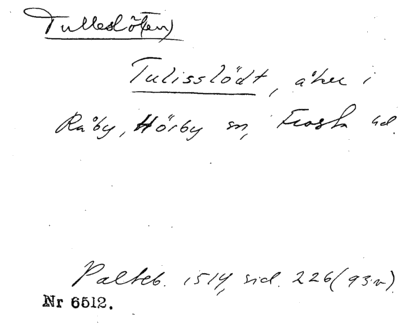 Tulleslöt(en)
Tulisslödt, åker i
Råby, Hörby sn, Frosta hd.
Palteb. 1514, sid. 226 (93v).
Nr 6512.